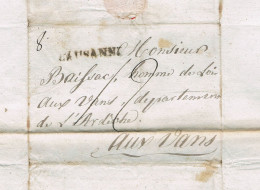 8
LAUSANNE Monsieur
Baissac, homme de Loi
aux Vans, departement
de L'Ardèche.
Aux Vans